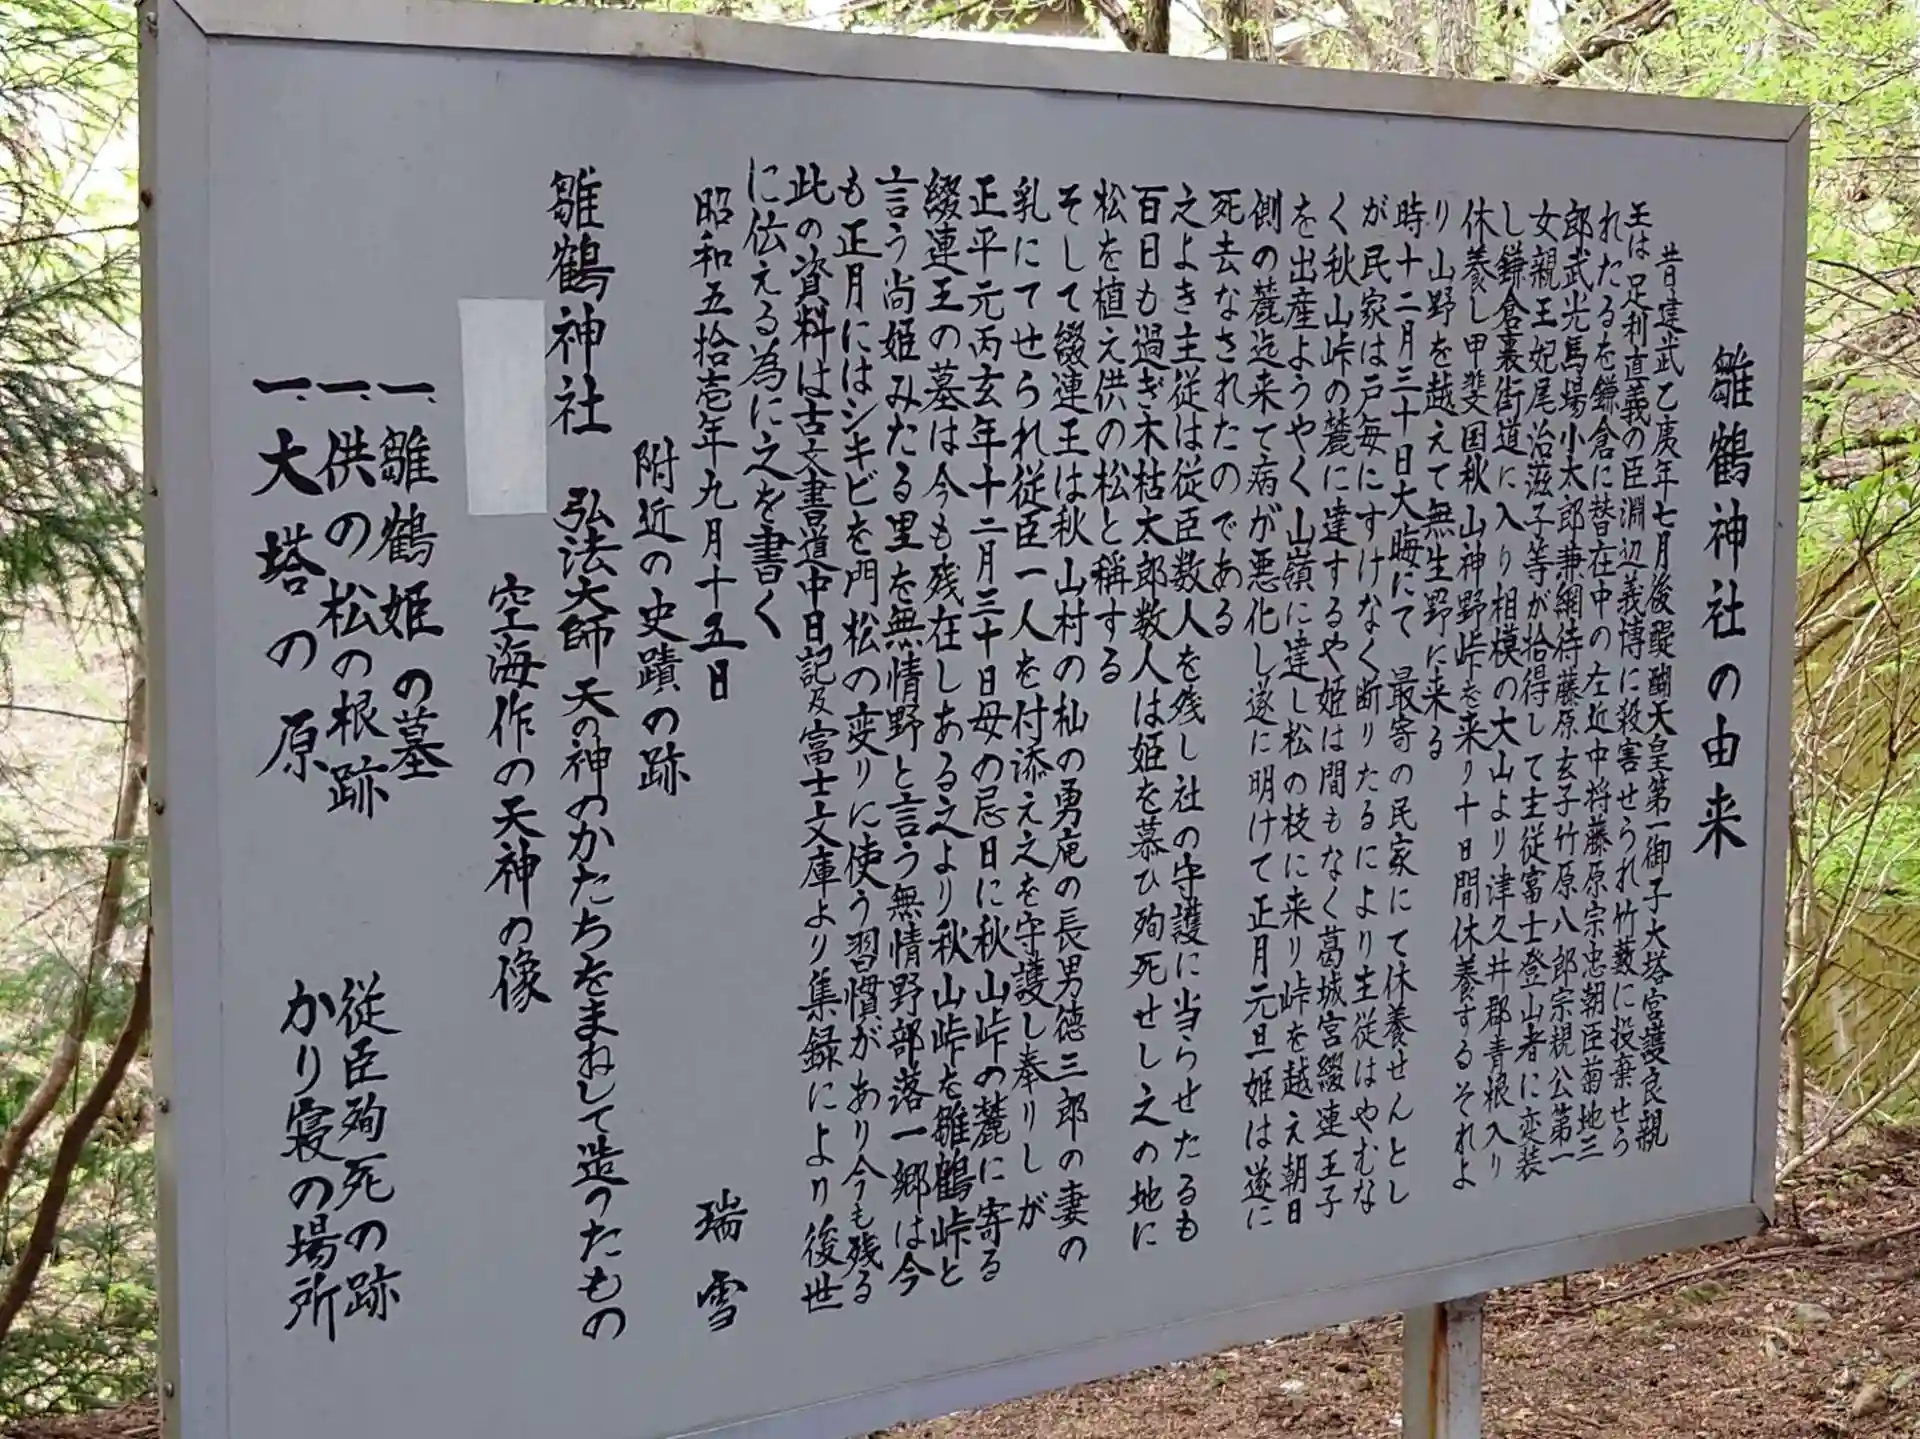 雛鶴神社の由来
昔建武乙庚年七月後醍醐天皇第一御子大塔宮護良親
王は足利直義の臣淵辺義博に殺害せられ竹藪に投棄せら
れたるを鎌倉に替在中の左近中将藤原宗忠朝臣菊地三
郎武光馬場小太郎兼綱侍藤原玄子竹原八郎宗規公第一
女親王妃尾治滋子等が拾得して主従富士登山者に変装
し鎌倉裏街道に入り相模の大山より津久井郡青根入り
休養し甲斐国秋山神野峠を来り十日間休養するそれよ
り山野を越えて無生野に来る
時十二月三十日大晦にて 最寄の民家にて休養せんとし
が民家は戸毎にすけなく断りたるにより主従はやむな
く秋山峠の麓に達するや姫は間もなく葛城宮綴連王子
を出産ようやく山嶺に達し松の枝に来り峠を越え朝日
側の麓迄来て病が悪化し遂に明けて正月元旦姫は遂に
死去なされたのである
之よき主従は従臣数人を残し社の守護に当らせたるも
百日も過ぎ木枯太郎数人は姫を慕ひ殉死せし之の地に
松を植え供の松と稱する
そして綴連王は秋山村の杣の勇庵の長男徳三郎の妻の
乳にてせられ従臣一人を付添え之を守護し奉りしが
正平元丙玄年十二月三十日母の忌日に秋山峠の麓に寄る
綴連王の墓は今も残在しある之より秋山峠を雛鶴峠と
言う尚姫みたる里を無情野と言う無情野部落一郷は今
も正月にはシキビを門松の変りに使う習慣があり今も残る
此の資料は古文書道中日記及富士文庫より集録により後世
に伝える為に之を書く
昭和五拾壱年九月十五日 瑞雪
附近の史蹟の跡
雛鶴神社 弘法大師 天の神のかたちをまねして造ったもの
空海作の天神の像
一、雛鶴姫の墓
一、供の松の根跡 従臣殉死の跡
一、大塔の原 かり寝の場所